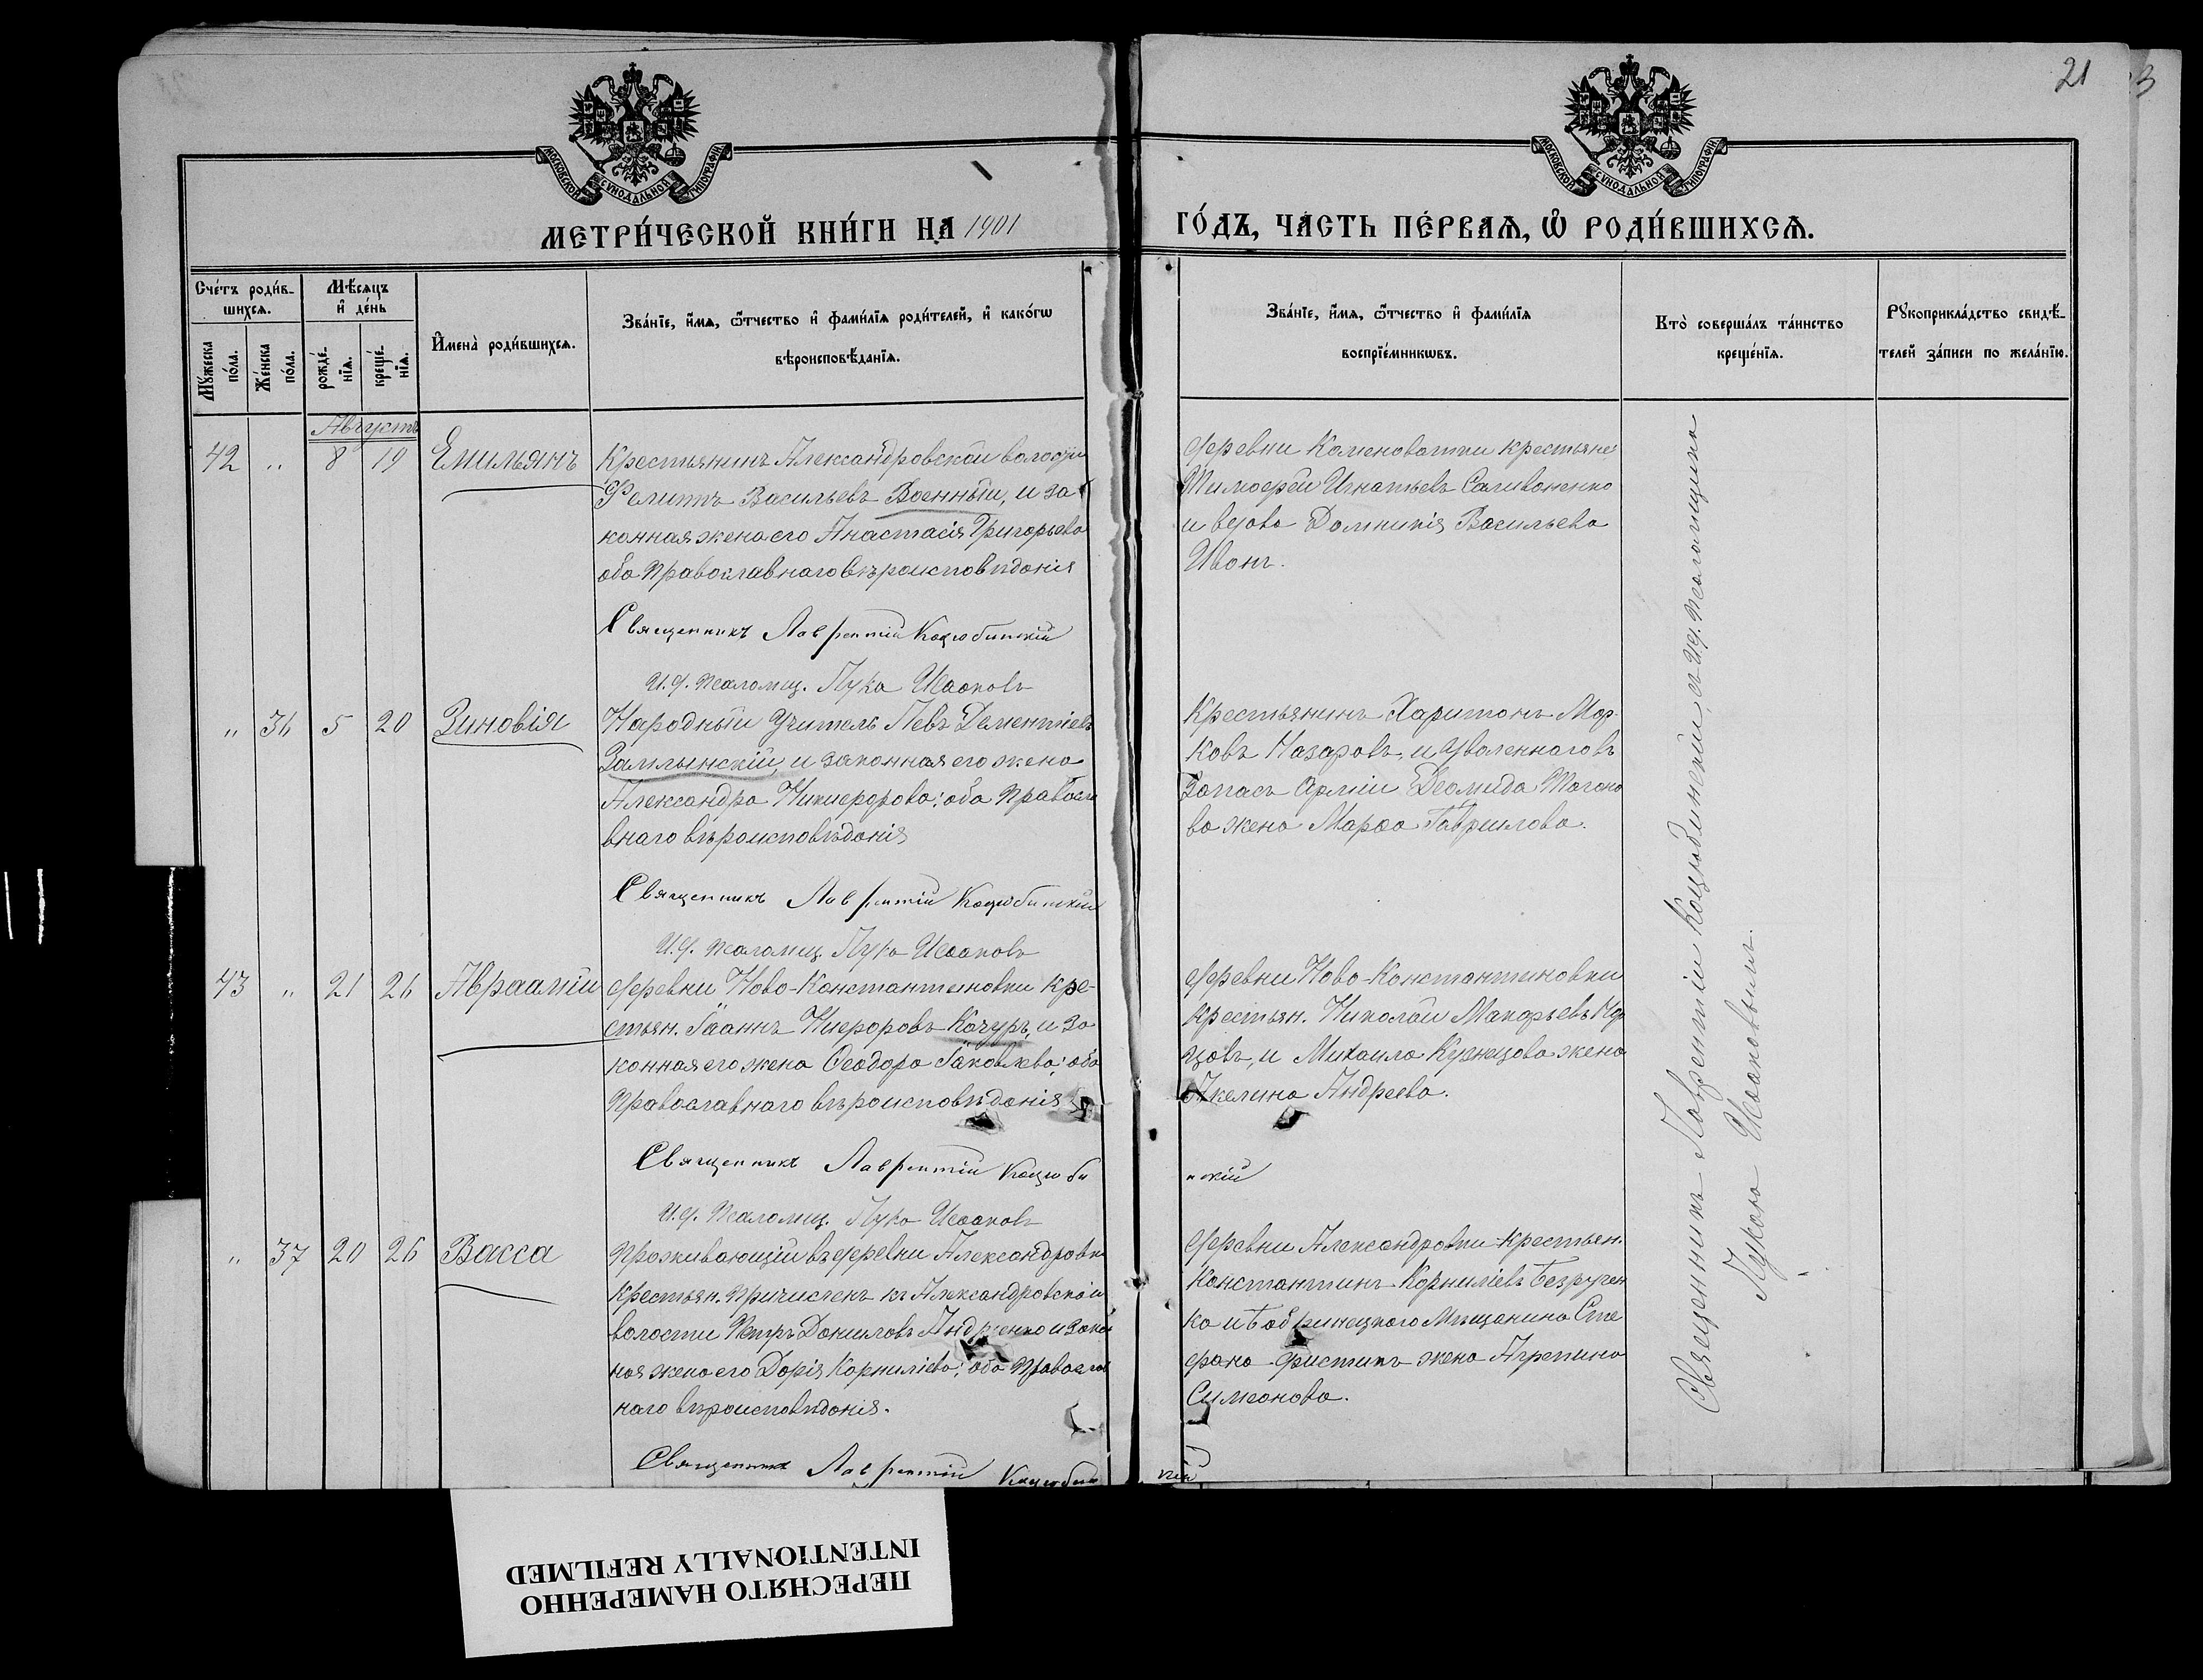 21
3
МОСКОВСКОЙ СѴНОДАЛЬНОЙ ТИПОГРАФІИ
МОСКОВСКОЙ СѴНОДАЛЬНОЙ ТИПОГРАФІИ
МЕТРИ́ЧЕСКОЙ КНИ́ГИ НА 1901 ГО́ДЪ, ЧА́СТЬ ПЕ́РВАѦ, Ѡ҆ РОДИ́ВШИХСѦ.
Сче́тъ роди́в-
шихсѧ.
Мꙋ́жеска по́ла.
Же́нска по́ла.
Мѣ́сѧцъ
и҆ де́нь
рожде́-
нїѧ.
креще́-
нїѧ.
И҆мена̀ роди́вшихсѧ.
Зва́нїе, и҆́мѧ, ѻ҆́тчество и҆ фами́лїѧ роди́телей, и҆ како́гѡ
вѣроисповѣ́данїѧ.
Зва́нїе, и҆́мѧ, ѻ҆́тчество и҆ фами́лїѧ
воспрїе́мникѡвъ.
Кто̀ соверша́лъ та́инство
креще́нїѧ.
Рꙋкоприкла́дство свидѣ́-
телей за́писи по жела́нїю.
Августъ
42 „ 8 19 Емильянъ
Крестьянинъ Александровской волости
Филиппъ Васильевъ Военный, и за
конная жена его Анастасія Григорьева
оба Православнаго вѣроисповѣданія
Священникъ Лаврентій Коцюбинскій
И.д. псаломщ. Лука Исаковъ
деревни Каменоватки крестьяне
Тимофей Игнатьевъ Саливоненко
и вдова Домникія Васильева
Ивонъ.
„ 36 5 20 Зиновія
Народный Учитель Левъ Дементіевъ
Замлынскій, и законная его жена
Александра Никифорова; оба Правосла
внаго вѣроисповѣданія
Священникъ Лаврентій Коцюбинскій
И.д. псаломщ. Лука Исаковъ
Крестьянинъ Харитонъ Мар-
ковъ Назаровъ, и уволеннаго въ
Запасъ Арміи Деомида
жена Марфа Гаврилова.
43 „ 21 26 Авраамій
деревни Ново-Константиновки кре-
стьян. Іоаннъ Нифоровъ Качуръ, и за
конная его жена Феодора Іаковлева; оба
Православнаго вѣроисповѣданія
Священникъ Лаврентій Коцюби
нскій
И.д. псаломщ. Лука Исаковъ
деревни Ново-Константиновки
крестьян. Николай Макарьевъ
и Михаила Кузнецова жена
Акелина Андреева.
„ 37 20 26 Васса
Проживающій въ деревни Александровки
Крестьян. Причислен. къ Александровской
волости Петръ Даниловъ Андріенко и закон
ная жена его Дарія Корниліева; оба Правосла
наго вѣроисповѣданія.
Священникъ Лаврентій Коцюбин
скій
деревни Александровки крестьян.
Константинъ Корниліевъ Безручен
ко и Бобринецкого Мѣщанина Сте
фана жена Агрепина
Симеонова.
Священникъ Лаврентій Коцюбинскій, съ и.д. псаломщика
Лукою Исаковымъ.
ПЕРЕСНЯТО НАМЕРЕННО
INTENTIONALLY REFILMED